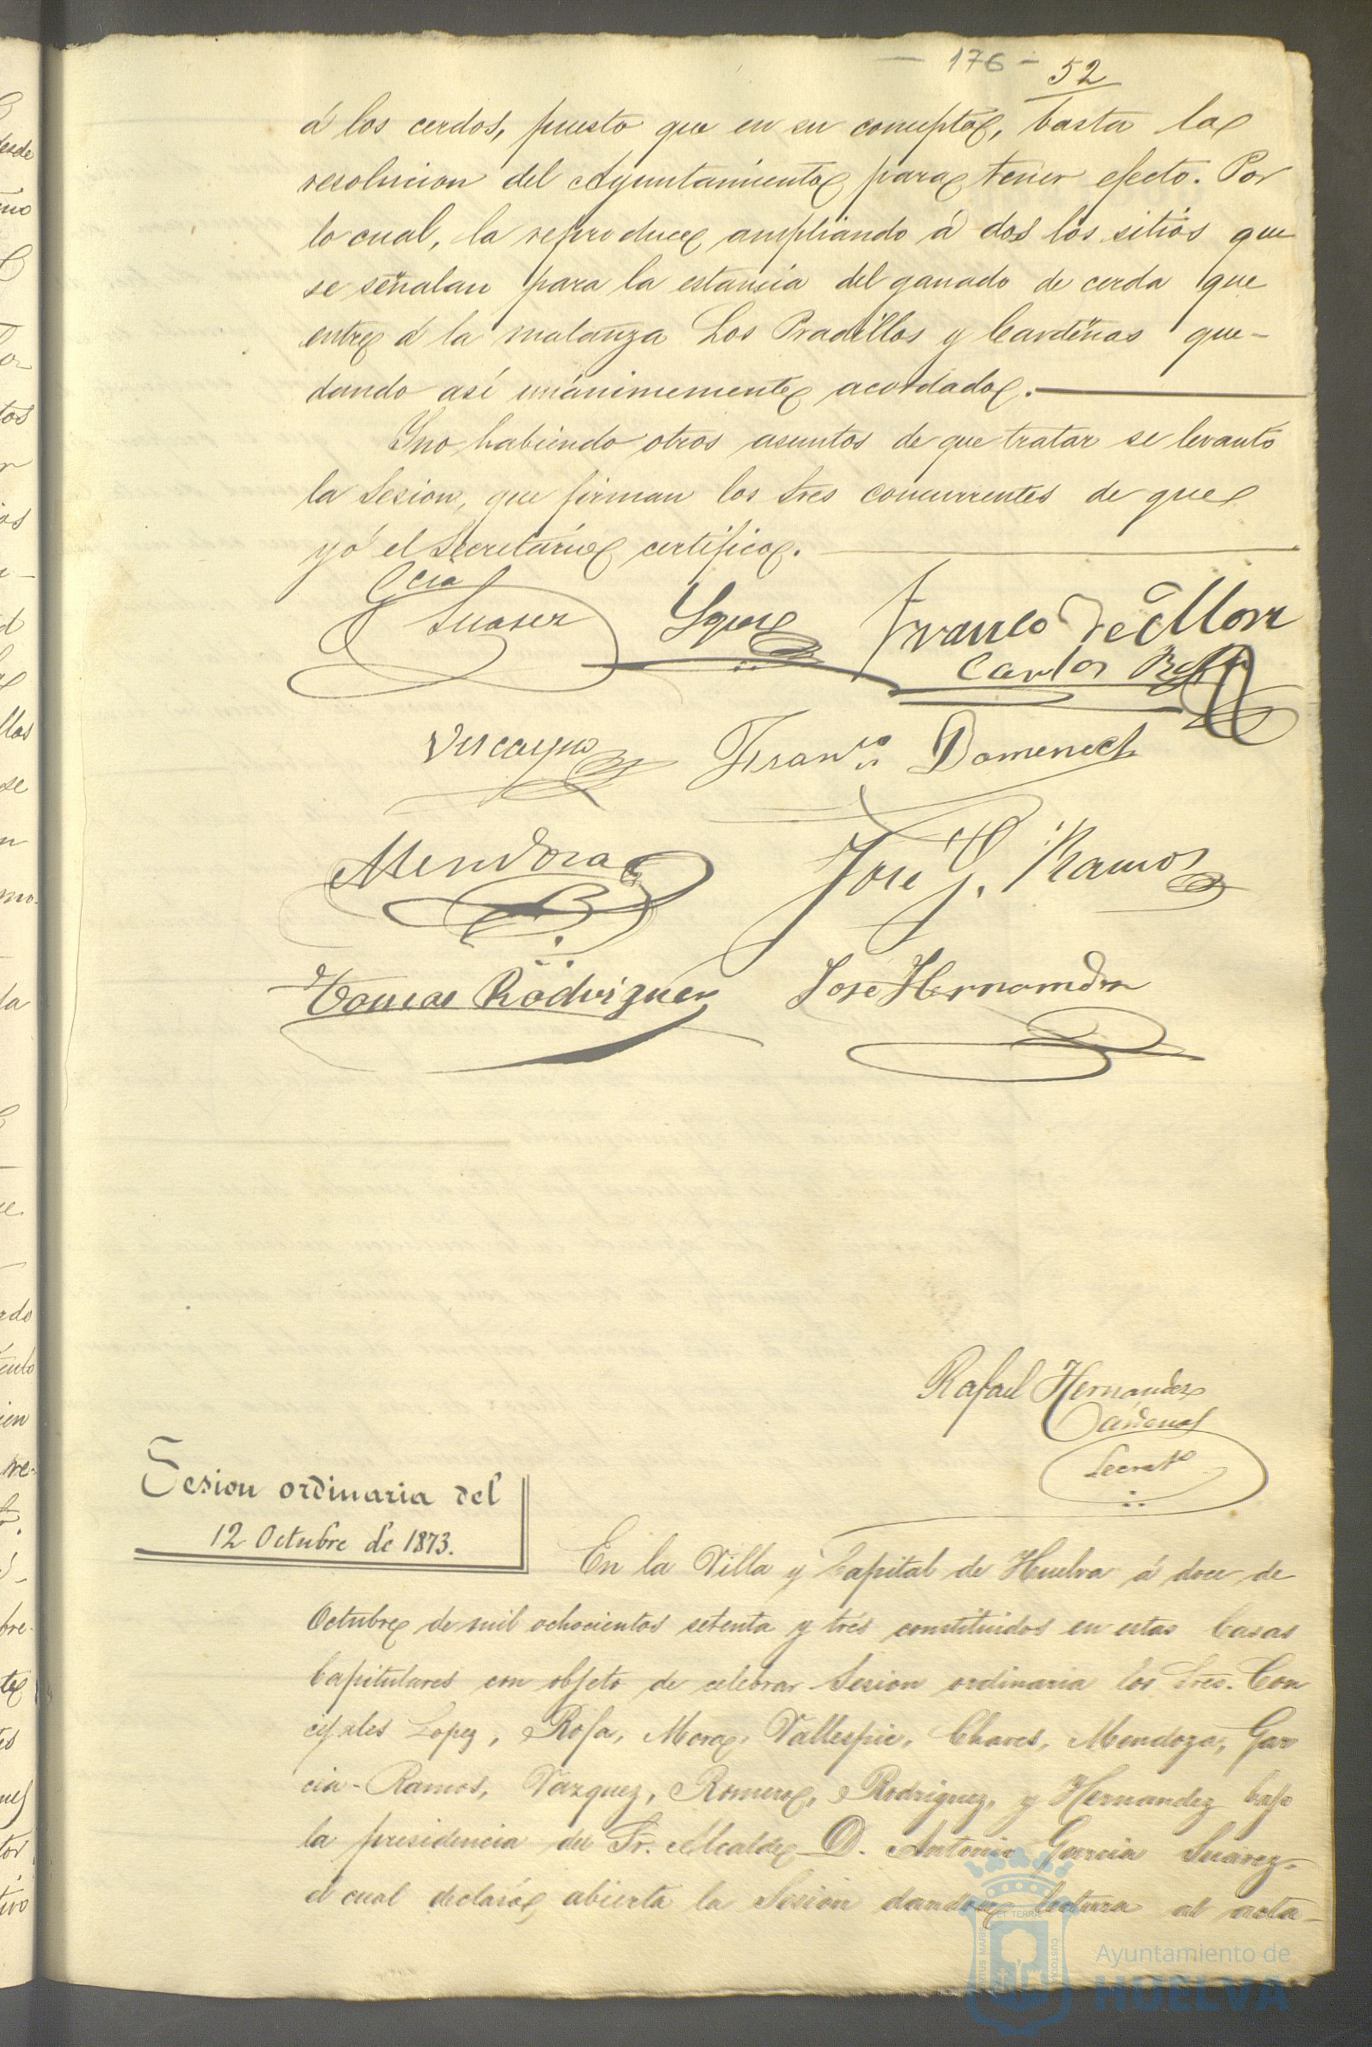 - 176 -
52
á los cerdos, puesto que en su concepto, basta la
resolucion del Ayuntamiento para tener efecto. Por
lo cual, la reproduce ampliando á dos los sitios que
se señalan para la estancia del ganado de cerda que
entre á la matanza Los Pradillos y Cardeñas que-
dando así unánimemente acordado.
Y no habiendo otros asuntos de que tratar se levantó
la Sesion, que firman los Sres concurrentes de que
yó el Secretario certifico.
Gcia
Suarez
Lopez
Franco de Mora
Carlos
Viscayno
Franco Domenech
Mendoza
José G. Ramos
Tomas Rodriguez
Jose Hernandez
Rafael Hernandez
Cardenas
Secreto
Sesion ordinaria del
12 Octubre de 1873.
En la Villa y Capital de Huelva á doce de
Octubre de mil ochocientos setenta y trés constituidos en estas Casas
Capitulares con objeto de celebrar Sesion ordinaria los Sres. Con
cejales Lopez, Rofa, Mora, Vallespin, Chaves, Mendoza, Gar
cia-Ramos, Vazquez, Romero, Rodriguez, y Hernandez bajo
la presidencia del Sr. Alcalde D. Antonio Garcia Suarez,
el cual declaró abierta la Sesion dandose lectura al acta
Ayuntamiento de
HUELVA